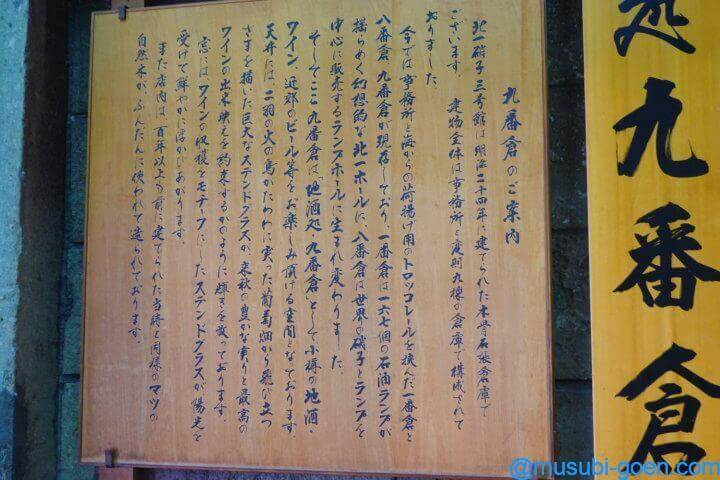 九番倉のご案内
北一硝子三号館は明治二十四年に建てられた木骨石張倉庫で
ございます。建物全体は事務所と変則九棟の倉庫で構成されて
おりました。
今では事務所と海からの荷揚げ用のトロッコレールを挟んだ一番倉と
八番倉、九番倉が現存しており、一番倉は一六七個の石油ランプが
揺らめく幻想的な北一ホールに、八番倉は世界の硝子とランプを
中心に販売するランプホールに生まれ変わりました。
そしてここ九番倉は「地酒処・九番倉」として小樽の地酒・
ワイン、近郊のビール等をお楽しみ頂ける空間となております。
天井には、二羽の火の鳥がたわわに実った葡萄畑から飛び立つ
さまを描いた巨大なステンドグラスが来秋の豊かな実りと最高の
ワインの出来映えを約束するかのように輝きを放っております。
窓にはワインの収穫をモチーフにしたステンドグラスが陽光を
受けて鮮やかに浮かびあがります。
また店内は、百年以上も前に建てられた当時と同様のマツの
自然木がふんだんに使われて造られております。
処九番倉
@musubi-goen.com